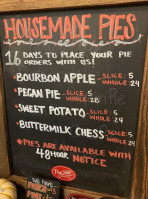 HOUSEMADE PIES
16 DAYS TO PLACE YOUR PIE
ORDERS WITH US!
• BOURBON APPLE - SLICE: 5
WHOLE: 24
• PECAN PIE - SLICE: 5
WHOLE: 28
• SWEET POTATO - SLICE: 5
WHOLE: 24
• BUTTERMILK CHESS - SLICE: 5
WHOLE: 24
* PIES ARE AVAILABLE WITH
48 HOUR NOTICE